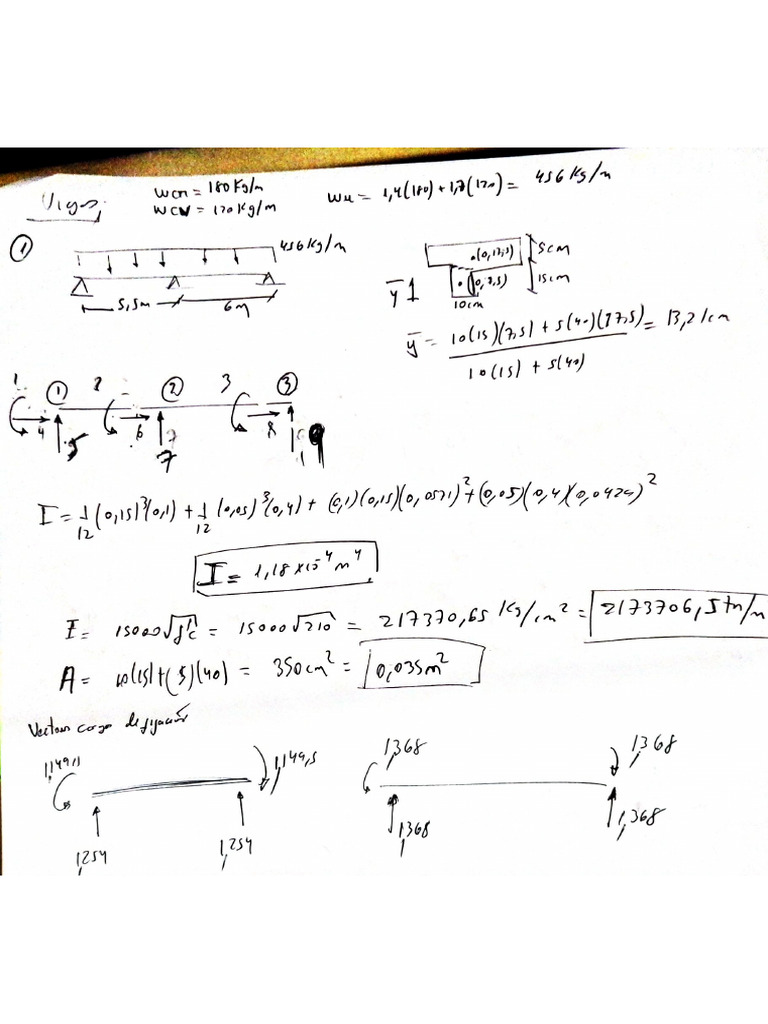 Vigas
Wcm = 180 Kg/m
Wcv = 120 Kg/m
Wu = 1,4(180) + 1,7(120) = 456 Kg/m
1
456 Kg/m
5,5m
6m
ȳ1
.(0,17,5)
.(0,7,5)
5cm
15cm
10cm
ȳ = 10(15)(7,5) + 5(40)(17,5) / 10(15) + 5(40) = 13,21cm
1 1 2 2 3 3
4 5 6 7 7 8 9
I = 1/12 (0,15)³(0,1) + 1/12 (0,05)³(0,4) + (0,1)(0,15)(0,0571)² + (0,05)(0,4)(0,0429)²
I = 1,18 x10⁻⁴ m⁴
E = 15000√f'c = 15000√210 = 217370,65 Kg/cm² = 2173706,5 tn/m
A = 10(15) + (5)(40) = 350cm² = 0,035m²
Vector carga de fijación
1,149,5 1,149,5
1,254 1,254
1,368 1,368
1,368 1,368